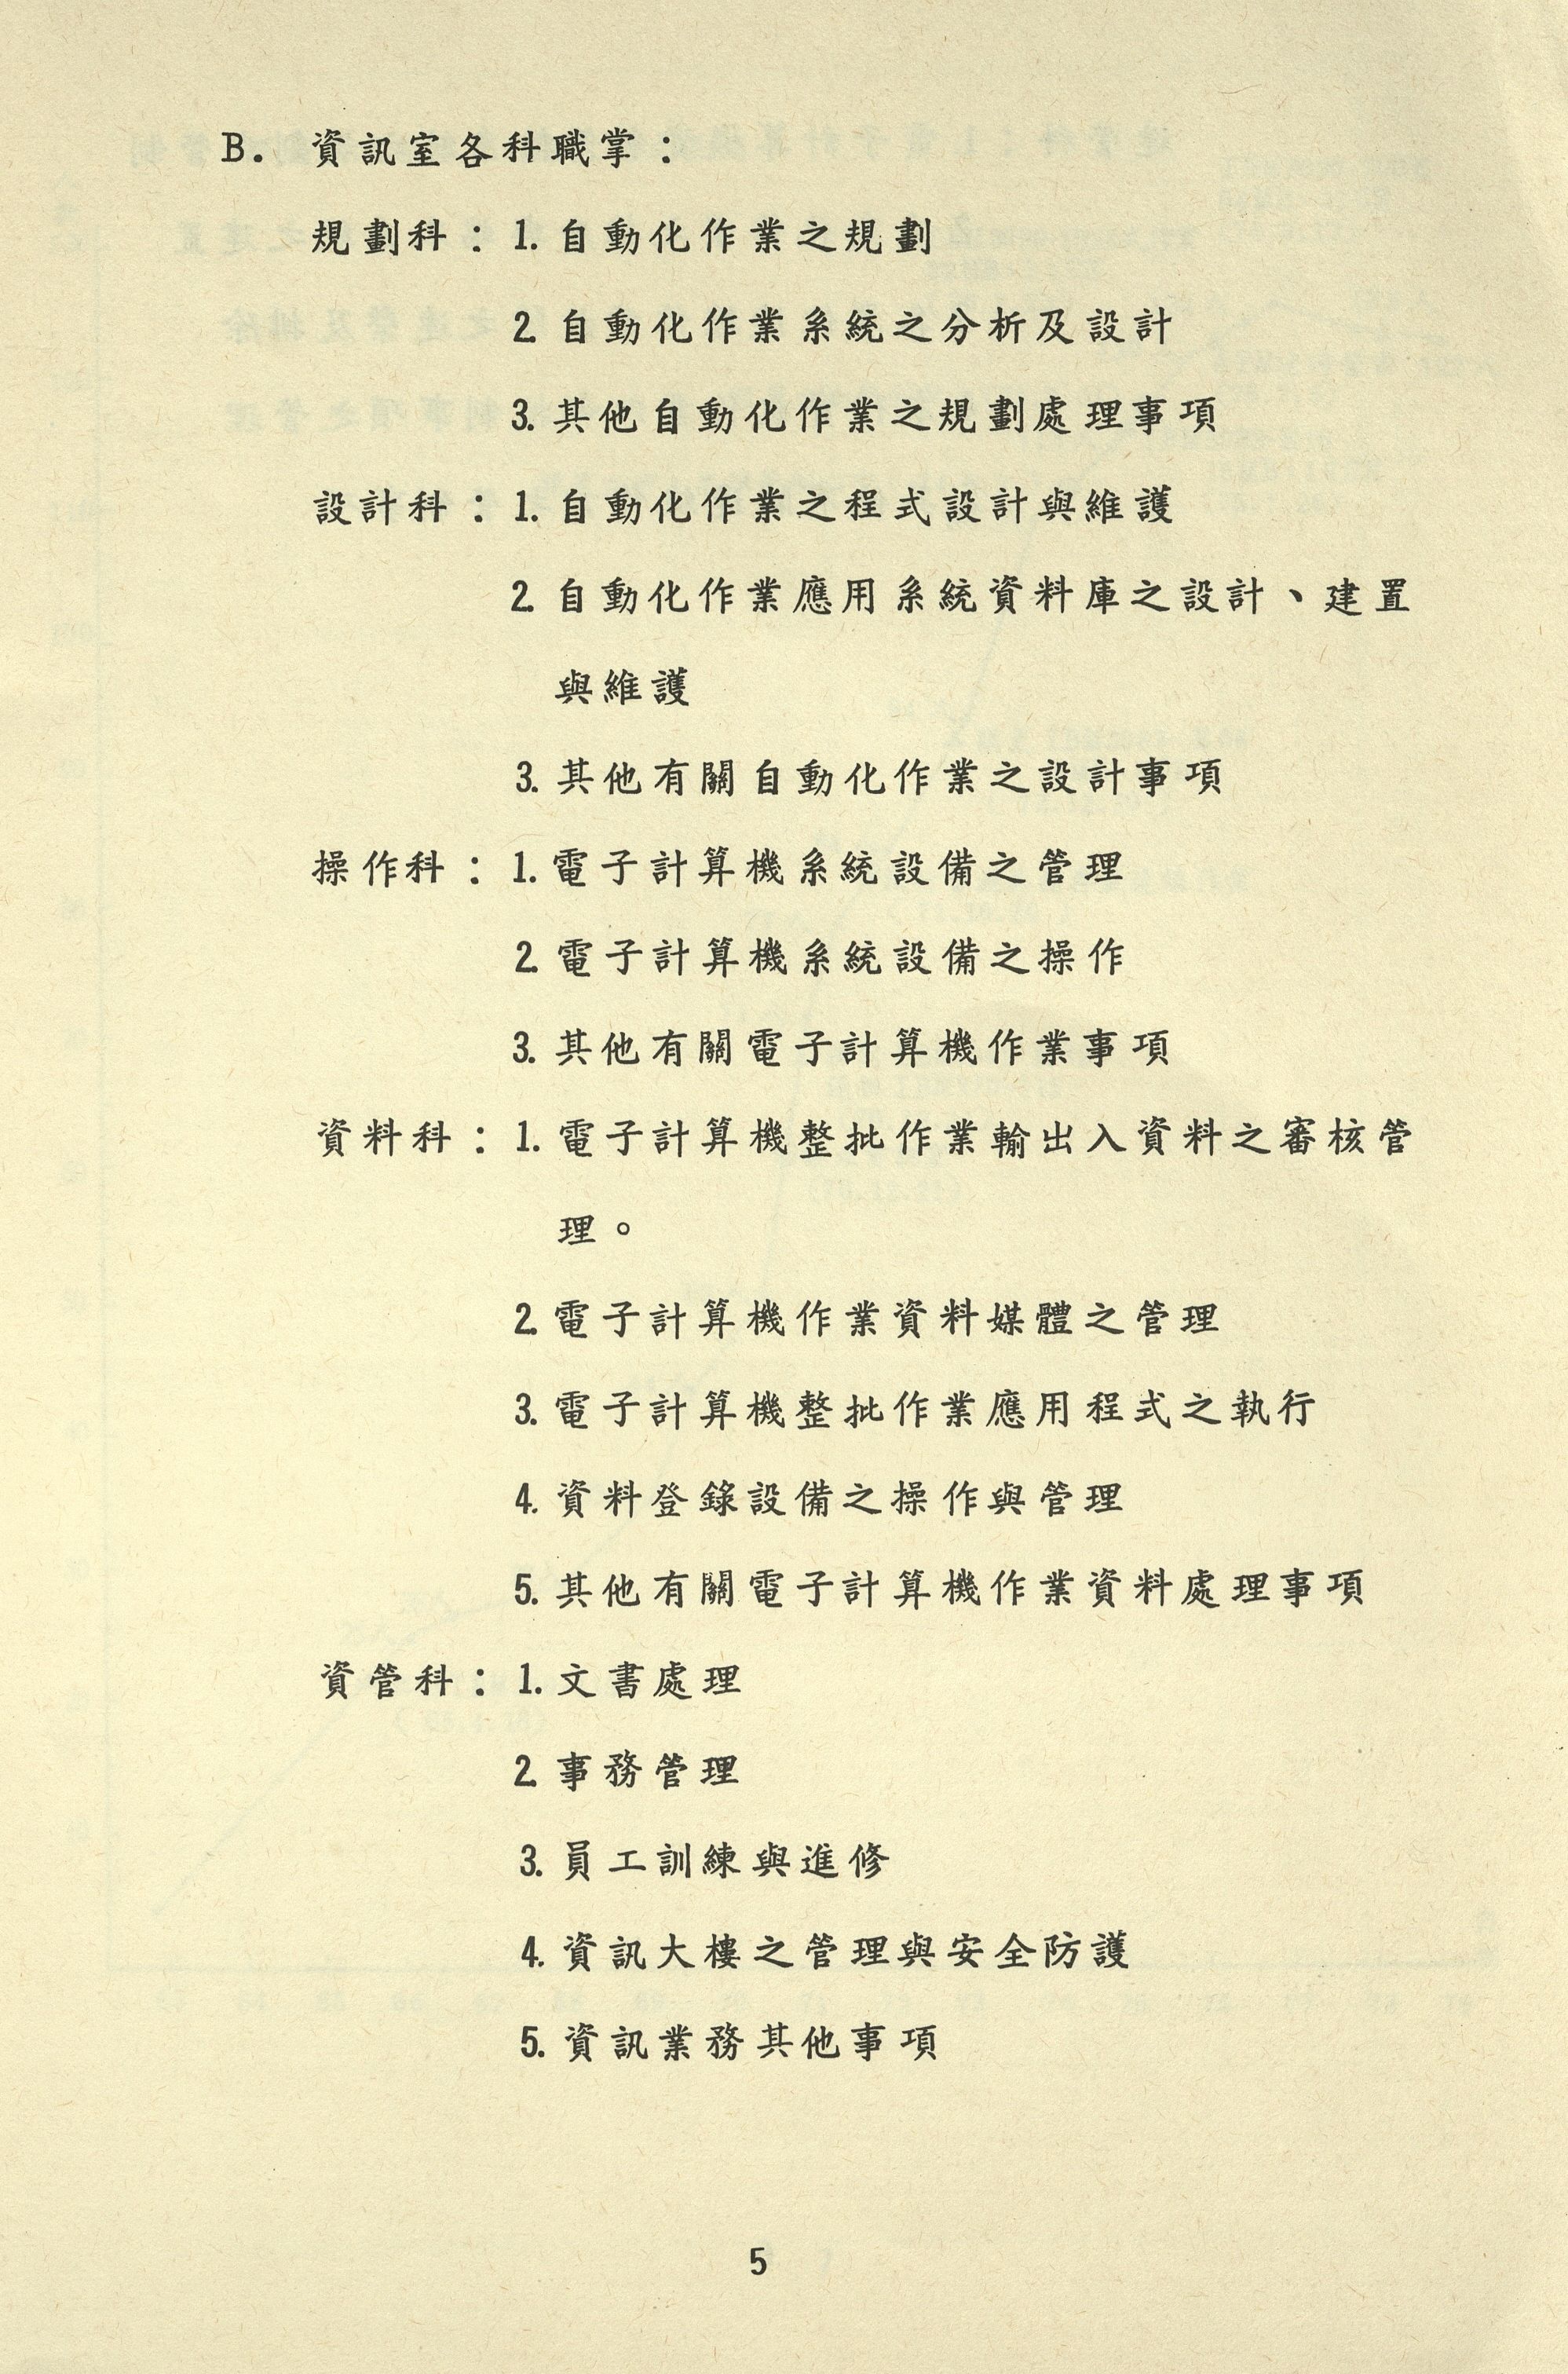 B. 資訊室各科職掌：
規劃科：1. 自動化作業之規劃
2. 自動化作業系統之分析及設計
3. 其他自動化作業之規劃處理事項
設計科：1. 自動化作業之程式設計與維護
2. 自動化作業應用系統資料庫之設計、建置
與維護
3. 其他有關自動化作業之設計事項
操作科：1. 電子計算機系統設備之管理
2. 電子計算機系統設備之操作
3. 其他有關電子計算機作業事項
資料科：1. 電子計算機整批作業輸出入資料之審核管
理。
2. 電子計算機作業資料媒體之管理
3. 電子計算機整批作業應用程式之執行
4. 資料登錄設備之操作與管理
5. 其他有關電子計算機作業資料處理事項
資管科：1. 文書處理
2. 事務管理
3. 員工訓練與進修
4. 資訊大樓之管理與安全防護
5. 資訊業務其他事項
5